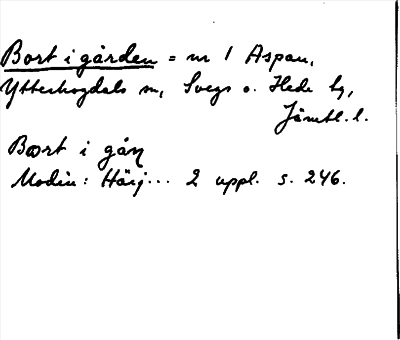 Bort i gården = nr 1 Aspan,
Ytterhogdals sn, Svegs o. Hede tg,
Jämtl. l.
Bort i gåɳ
Modin: Härj... 2 uppl. s. 246.